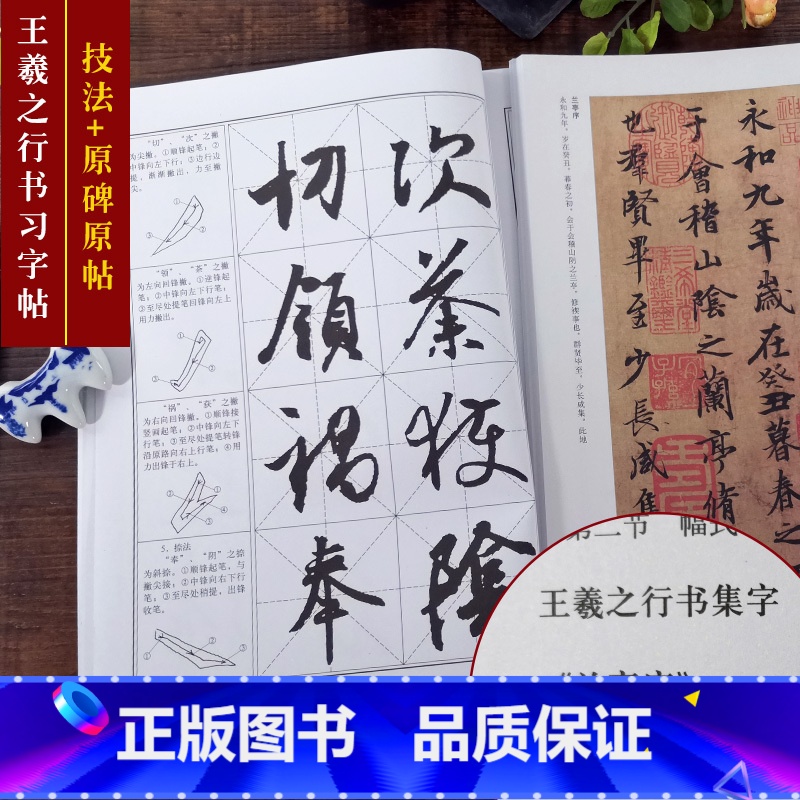 王羲之行书习字帖
技法+原碑原帖
“切”、“次”之撇
为尖撇。①顺锋起笔；②
中锋向左下行；③边行边
提，渐渐撇出，力至撇
尖。
①
②
③
“领”、“茶”之撇
为左向回锋撇。①逆锋起
笔；②中锋向左下行笔；
③至尽处提笔回锋向左上
用力撇出。
①
②
③
“祸”、“获”之撇
为右向回锋撇。①顺锋接
竖画起笔；②中锋向左下
行笔；③至尽处提笔转锋
沿原路向右上行笔；④用
力出锋于右上。
①
②
③
④
5. 捺法
“奉”、“阴”之捺
为斜捺。①顺锋起笔，与
撇尖接；②中锋向右下行
笔；③至尽处稍提，出锋
收笔。
①
②
③
切 次
领 茶
祸 获
奉 陰
兰亭序
永和九年，岁在癸丑，暮春之初，会于会稽山阴之兰亭，修禊事也。群贤毕至，少长咸集。此地
永和九年歲在癸丑暮春之
于會稽山陰之蘭亭脩
也羣賢畢至少長咸集
第二节 幅式
王羲之行书集字
正版图书 品质保证